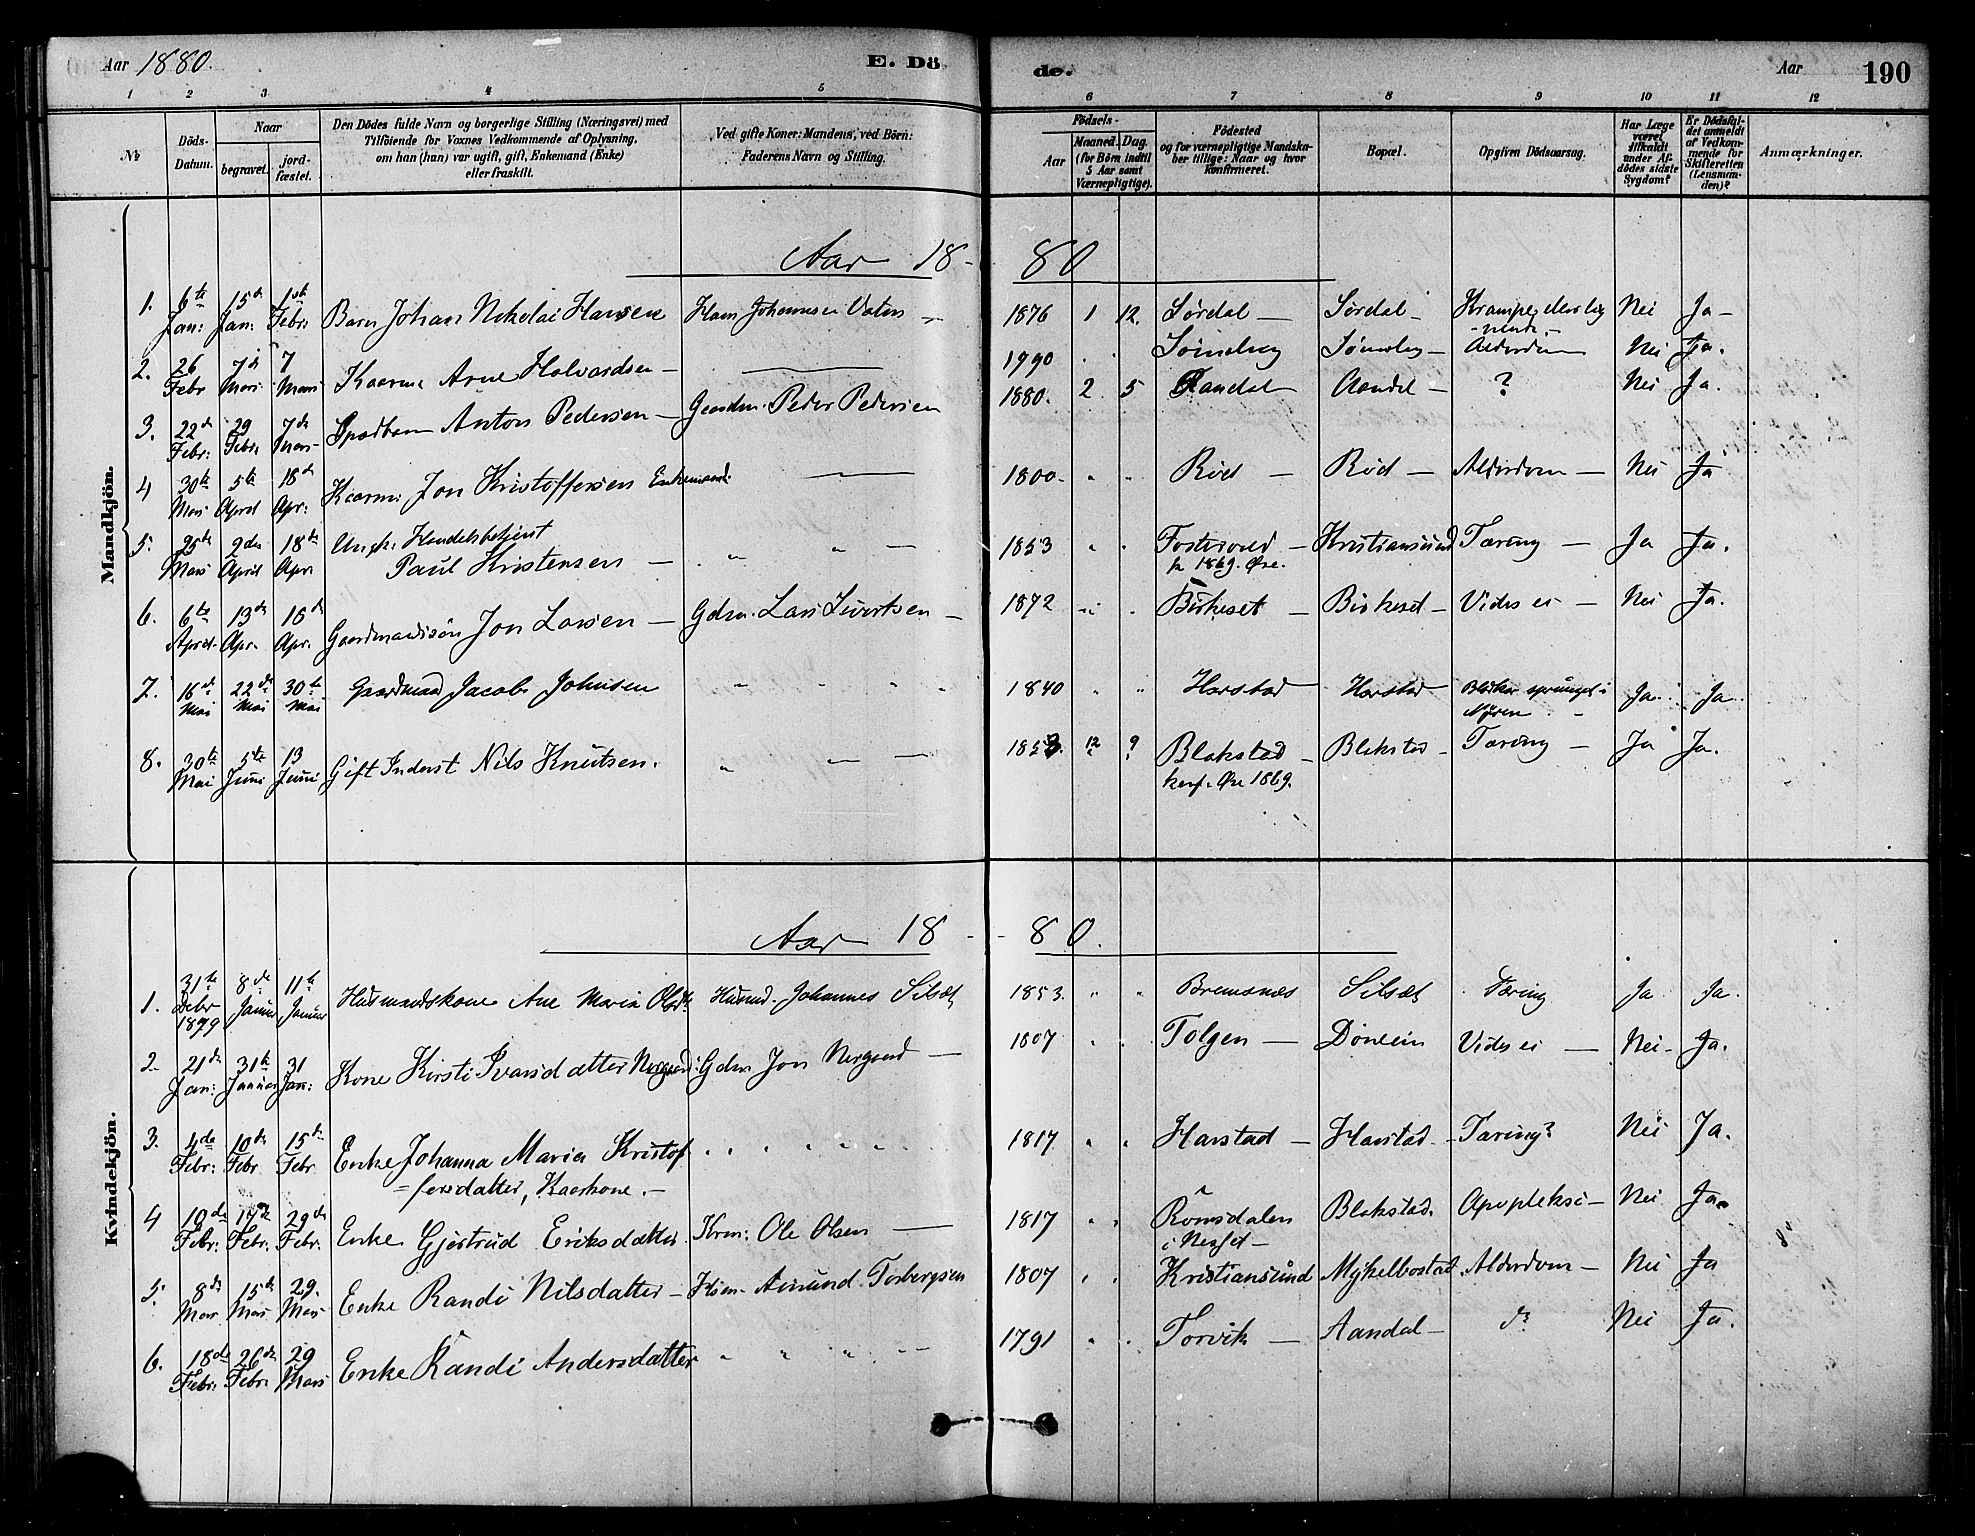 Aar 1880. E. Dö de. Aar 190
1 2 3 4 5 6 7 8 9 10 11 12
№ Döds-Datum. Naar begravet. jord-fæstet. Den Dödes fulde Navn og borgerlige Stilling (Næringsvei) med Tilföiende for Voxnes Vedkommende af Oplysning, om han (han) var ugift, gift, Enkemand (Enke) eller fraskilt. Ved gifte Koner: Mandens, ved Börn: Faderens Navn og Stilling. Födsels- Aar Maaned. Dag. (for Börn indtil 5 Aar samt Værnepligtige). Födested og for værnepligtige Mandska-ber tillige: Naar og hvor konfirmeret. Bopæl. Opgiven Dödsaarsag. Har Læge været tilkaldt under Af-dödes sidste Sygdom? Er Dödsfal-det anmeldt af Vedkom-mende for Skifteretten (Lensman-den)? Anmærkninger.
Mandkjön.
Aar 18- 80
1. 6te Jan: 15de Jan: 1ste Febr: Barn Johan Nikolai Hansen Hans Johannesen 1876 1 12. Sørdal — Sørdal — Nei Ja —
2. 26 Febr 7de Mars 7 Mars Kaarm Arne Halvardsen — 1790 Alderdom Nei Ja.
3. 22de Febr: 29 Febr. 7de Mars Spædbarn Anton Pedersen — Gaardm. Peder Pedersen 1880. 2 5 Aandal — ? Nei Ja.
4 30te Mars 5te April 18de Apr: Kaarm: Jon Kristoffersen Enkemand. — 1800 Rød — Rød — Alderdom — Nei Ja
5. 25de Mars 2den April 18de Apr. Ungk: Handelsbetjent
Paul Kristensen — 1853 — Kristiansund Tæring — Ja Ja.
k 1869. Øre.
6. 6te April 13de Apr. 18de Apr. Gaardmandssøn Jon Larsen — Gdm. Lars Sivertsen — 1872 Birkeset — Birkeset — Vides ei — Nei Ja.
7. 16de Mai 22de Mai 30te Mai Gaardmand Jacob Johnsen 1840 Harstad — Harstad Ja. Ja
8. 30te Mai 5te Juni 13 Juni Gift Inderst Nils Knutsen. 1853. 12 9 Blakstad — Blakstad — Tæring — Ja Ja.
konf. Øre 1869.
Kvindekjön.
Aar 18 - - 80.
1. 31te Debr 1879 8de Januar 11te Januar Husmandskone Ane Maria Olsdtr Husmd. Johannes Silsæt 1853. Bremsnes Silsæt Tæring Ja Ja.
2. 21de Jan: 31te Januar 31 Jan: Kone Kirsti Ivarsdatter Nergaard: Gdm Jon Nergaard — 1807 Tolgen — Vides ei — Nei — Ja.
3. 4de Febr: 10de Febr. 15de Febr Enke Johanna Maria Kristof
=fersdatter, Kaarkone. — 1817 Harstad — Harstad — Tæring? Nei Ja.
4 10de Febr: 17de Febr: 29de Febr: Enke Gjertrud Eriksdatter Krm: Ole Olsen — 1817 Romsdalen
i Nesset — Blakstad. Apopleksi — Nei Ja.
5. 8de Mars 15de Mars 29. Mars Enke Randi Nilsdatter — Amund Torbergsen 1807 Kristiansund Myhelbostad Alderdom — Nei Ja
6. 18de Febr: 26de Febr: 29 Mars Enke Randi Andersdatter 1791 Torvik — Aandal — do Nei Ja.